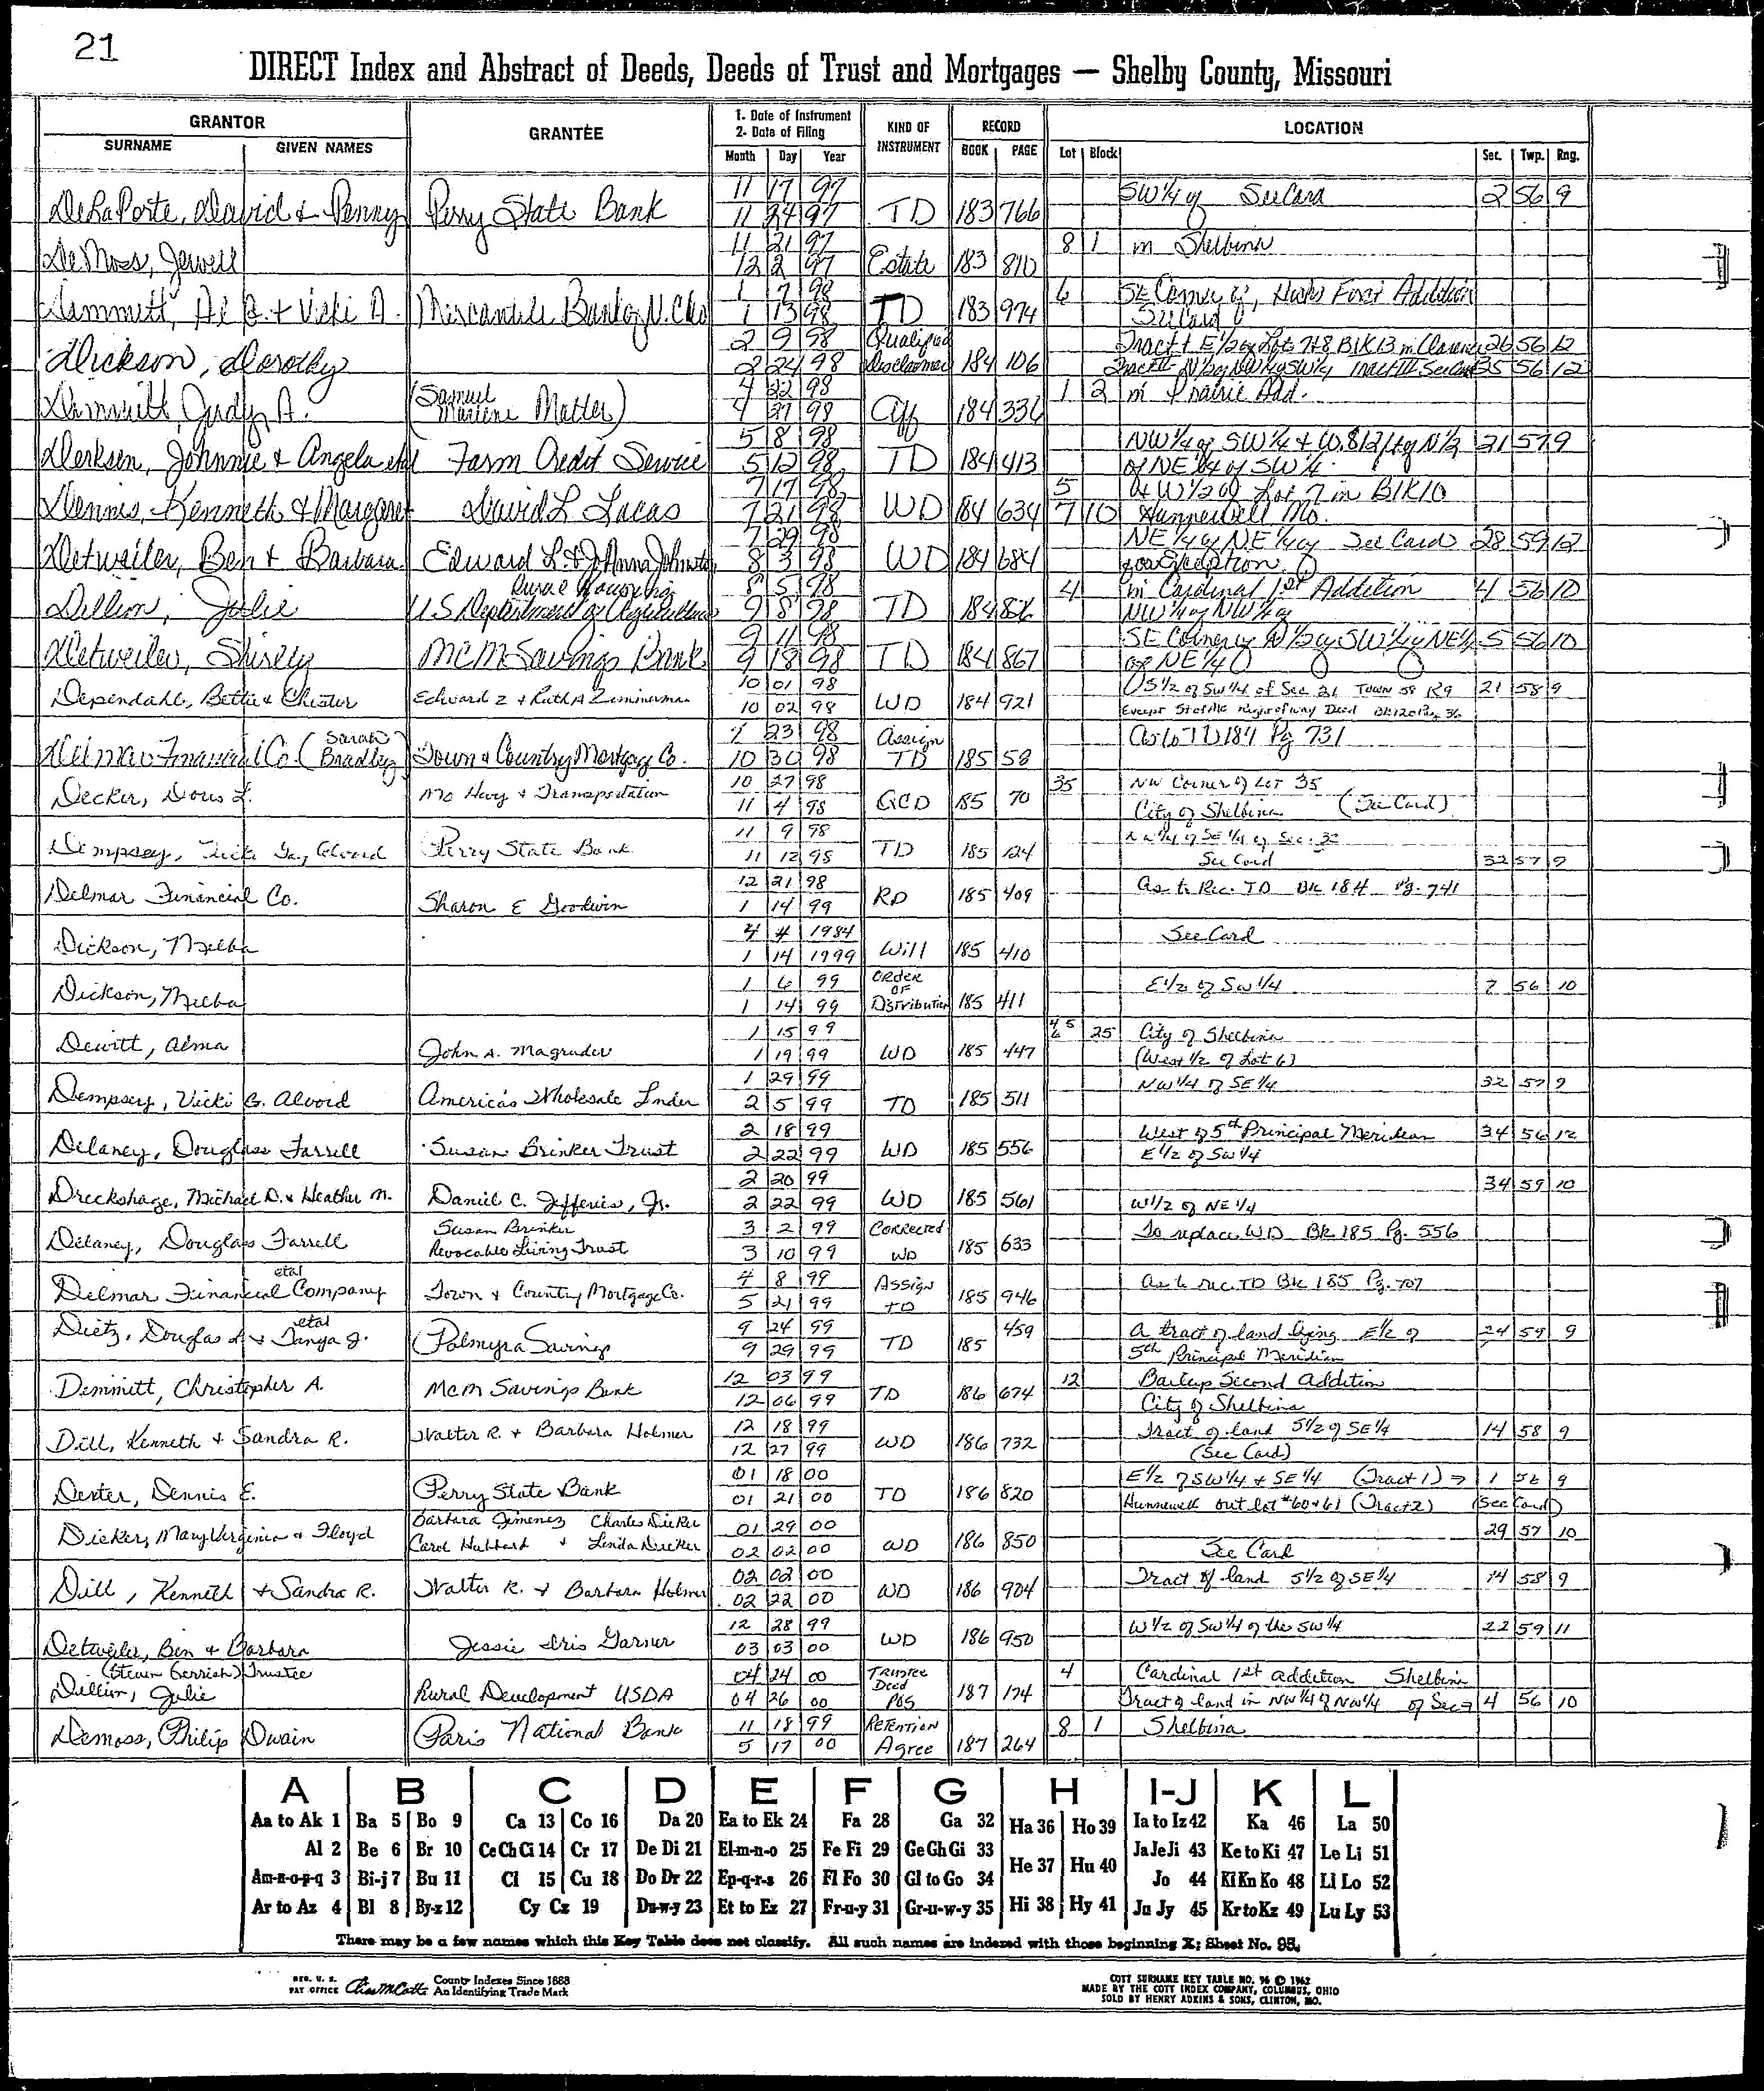 21
DIRECT Index and Abstract of Deeds, Deeds of Trust and Mortgages — Shelby County, Missouri
GRANTOR GRANTEE 1. Date of Instrument 2. Date of Filing KIND OF INSTRUMENT RECORD LOCATION
SURNAME GIVEN NAMES Month Day Year BOOK PAGE Lot Block Sec. Twp. Rng.
11 17 97 SW 1/4 of See Card 2 56 9
DeLaPorte, David & Penny Perry State Bank 11 24 97 TD 183 766
11 21 97 8 1 in Shelbina
DeMoss, Jewell 12 2 97 Estate 183 810
1 7 98 6 SE Corner of, First Addition
& Vicki A. Mercantile Bank of N. 1 13 98 TD 183 974 See Card
2 9 98 Qualified Tract I E 1/2 of Lots 7 & 8 Blk 13 in Clarence 26 56 12
Dickson, Dorothy 2 24 98 Disclaimer 184 106 Tract II N 1/2 of NW 1/4 of SW 1/4 Tract III See Card 35 56 12
(Samuel 4 22 98 1 2 in Prairie Add.
Judy A. Marlene Matler) 4 27 98 Aff 184 336
5 8 98 NW 1/4 of SW 1/4 & W. 812 ft of N 1/2 21 57 9
Derksen, Johnnie & Angela etal Farm Credit Service 5 12 98 TD 184 413 of NE 1/4 of SW 1/4
7 17 98 5 & W 1/2 of Lot 7 in Blk 10
Dennis, Kenneth & Margaret David L Lucas 7 21 98 WD 184 634 7 10 Hunnewell Mo.
7 29 98 NE 1/4 of NE 1/4 of See Card 28 59 12
Detweiler, Ben & Barbara Edward L. & JoAnna Johnston 8 3 98 WD 184 684 for Exception
Rural Housing 8 5 98 4 in Cardinal 1st Addition 4 56 10
Dillion, Julie U.S Department of Agriculture 9 8 98 TD 184 826 NW 1/4 of NW 1/4 of
9 11 98 SE Corner of N 1/2 of SW 1/4 of NE 1/4 5 56 10
Detweiler, Shirley MCM Savings Bank 9 18 98 TD 184 867 of NE 1/4
10 01 98 S 1/2 of SW 1/4 of Sec 21 Town 58 R9 21 58 9
Dependahl, Bettie & Chester Edward Z & Ruth A Zimmerman 10 02 98 WD 184 921 Except State Mo Right of way Deed Bk 120 Pg. 36
(Sarah 7 23 98 Assign As to TD 184 Pg 731
Delmar Financial Co (Bradley) Town & Country Mortgage Co. 10 30 98 TD 185 58
10 27 98 35 NW Corner of Lot 35
Decker, Doris L. Mo Hwy & Transportation 11 4 98 QCD 185 70 City of Shelbina (See Card)
11 9 98 NW 1/4 of SE 1/4 of Sec. 32
Dempsey, Vicki Gay Alvord Perry State Bank 11 12 98 TD 185 124 See Card 32 57 9
12 21 98 As to Rec. TD Bk 184 Pg. 741
Delmar Financial Co. Sharon E Goodwin 1 14 99 RD 185 409
4 4 1984 See Card
Dickson, Melba 1 14 1999 Will 185 410
1 6 99 ORDER OF E 1/2 of SW 1/4 7 56 10
Dickson, Melba 1 14 99 Distribution 185 411
1 15 99 4 5 6 25 City of Shelbina
Dewitt, Alma John A. Magruder 1 19 99 WD 185 447 (West 1/2 of Lot 6)
1 29 99 NW 1/4 of SE 1/4 32 57 9
Dempsey, Vicki G. Alvord America's Wholesale Lender 2 5 99 TD 185 511
2 18 99 West of 5th Principal Meridian 34 56 12
Delaney, Douglass Farrell Susan Brinker Trust 2 22 99 WD 185 556 E 1/2 of SW 1/4
2 20 99 34 59 10
Dreckshage, Michael D. & Heather M. Daniel C. Jefferies, Jr. 2 22 99 WD 185 561 W 1/2 of NE 1/4
Susan Brinker 3 2 99 Corrected To replace WD Bk 185 Pg. 556
Delaney, Douglass Farrell Revocable Living Trust 3 10 99 WD 185 633
etal 4 8 99 Assign As to rec. TD Bk 185 Pg. 707
Delmar Financial Company Town & Country Mortgage Co. 5 21 99 TD 185 946
etal 9 24 99 459 A tract of land lying E 1/2 of 24 59 9
Dietz, Douglas A & Tanya J. Palmyra Savings 9 29 99 TD 185 5th Principal Meridian
12 03 99 12 Second Addition
Demmitt, Christopher A. MCM Savings Bank 12 06 99 TD 186 674 City of Shelbina
12 18 99 Tract of land S 1/2 of SE 1/4 14 58 9
Dill, Kenneth & Sandra R. Walter R. & Barbara Holmer 12 27 99 WD 186 732 (See Card)
01 18 00 E 1/2 of SW 1/4 & SE 1/4 (Tract 1) → 1 56 9
Dexter, Dennis E. Perry State Bank 01 21 00 TD 186 820 Hunnewell out lot #60 & 61 (Tract 2) (See Card)
Barbara Jimenez Charles Dicker 01 29 00 29 57 10
Dicker, Mary Virginia & Floyd Carol Hubbard & Linda Dicker 02 02 00 WD 186 850 See Card
02 02 00 Tract of land S 1/2 of SE 1/4 14 58 9
Dill, Kenneth & Sandra R. Walter R. & Barbara Holmer 02 22 00 WD 186 904
12 28 99 W 1/2 of SW 1/4 of the SW 1/4 22 59 11
Detweiler, Ben & Barbara Jessie Iris Garner 03 03 00 WD 186 950
(Steven Gerrish) Trustee 04 24 00 Trustee Deed 4 Cardinal 1st Addition Shelbina
Dillion, Julie Rural Development USDA 04 26 00 POS 187 174 Tract of land in NW 1/4 of NW 1/4 of Sec → 4 56 10
11 18 99 Retention 8 1 Shelbina
Demoss, Philip Dwain Paris National Bank 5 17 00 Agree 187 264
A B C D E F G H I-J K L
Aa to Ak 1 Ba 5 Bo 9 Ca 13 Co 16 Da 20 Ea to Ek 24 Fa 28 Ga 32 Ha 36 Ho 39 Ia to Iz 42 Ka 46 La 50
Al 2 Be 6 Br 10 Ce Ch Ci 14 Cr 17 De Di 21 El-m-n-o 25 Fe Fi 29 Ge Gh Gi 33 He 37 Hu 40 Ja Je Ji 43 Ke to Ki 47 Le Li 51
Am-n-o-p-q 3 Bi-j 7 Bu 11 Cl 15 Cu 18 Do Dr 22 Ep-q-r-s 26 Fl Fo 30 Gl to Go 34 Jo 44 Kl Kn Ko 48 Ll Lo 52
Ar to Az 4 Bl 8 By-z 12 Cy Cz 19 Du-w-y 23 Et to Ez 27 Fr-u-y 31 Gr-u-w-y 35 Hi 38 Hy 41 Ju Jy 45 Kr to Kz 49 Lu Ly 53
There may be a few names which this Key Table does not classify. All such names are indexed with those beginning X; Sheet No. 95.
REG. U. S. PAT OFFICE County Indexes Since 1888 An Identifying Trade Mark
COTT SURNAME KEY TABLE NO. 96 © 1962
MADE BY THE COTT INDEX COMPANY, COLUMBUS, OHIO
SOLD BY HENRY ADKINS & SONS, CLINTON, MO.